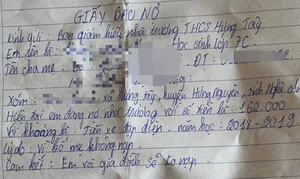 GIẤY BÁO NỢ
Kính gửi: Ban giám hiệu nhà trường THCS Hưng Tây
Em tên là: học sinh lớp 7C
Tên cha mẹ: ĐT: 0
Xóm: xã Hưng Tây, huyện Hưng Nguyên, tỉnh Nghệ
Hiện tại em đang nợ nhà trường với số tiền là: 162.000
Về khoản: Tiền xe đạp điện. năm học: 2018-2019
Lý do: vì bố mẹ không nạp
Cam kết: Em và gia đình sẽ nạp